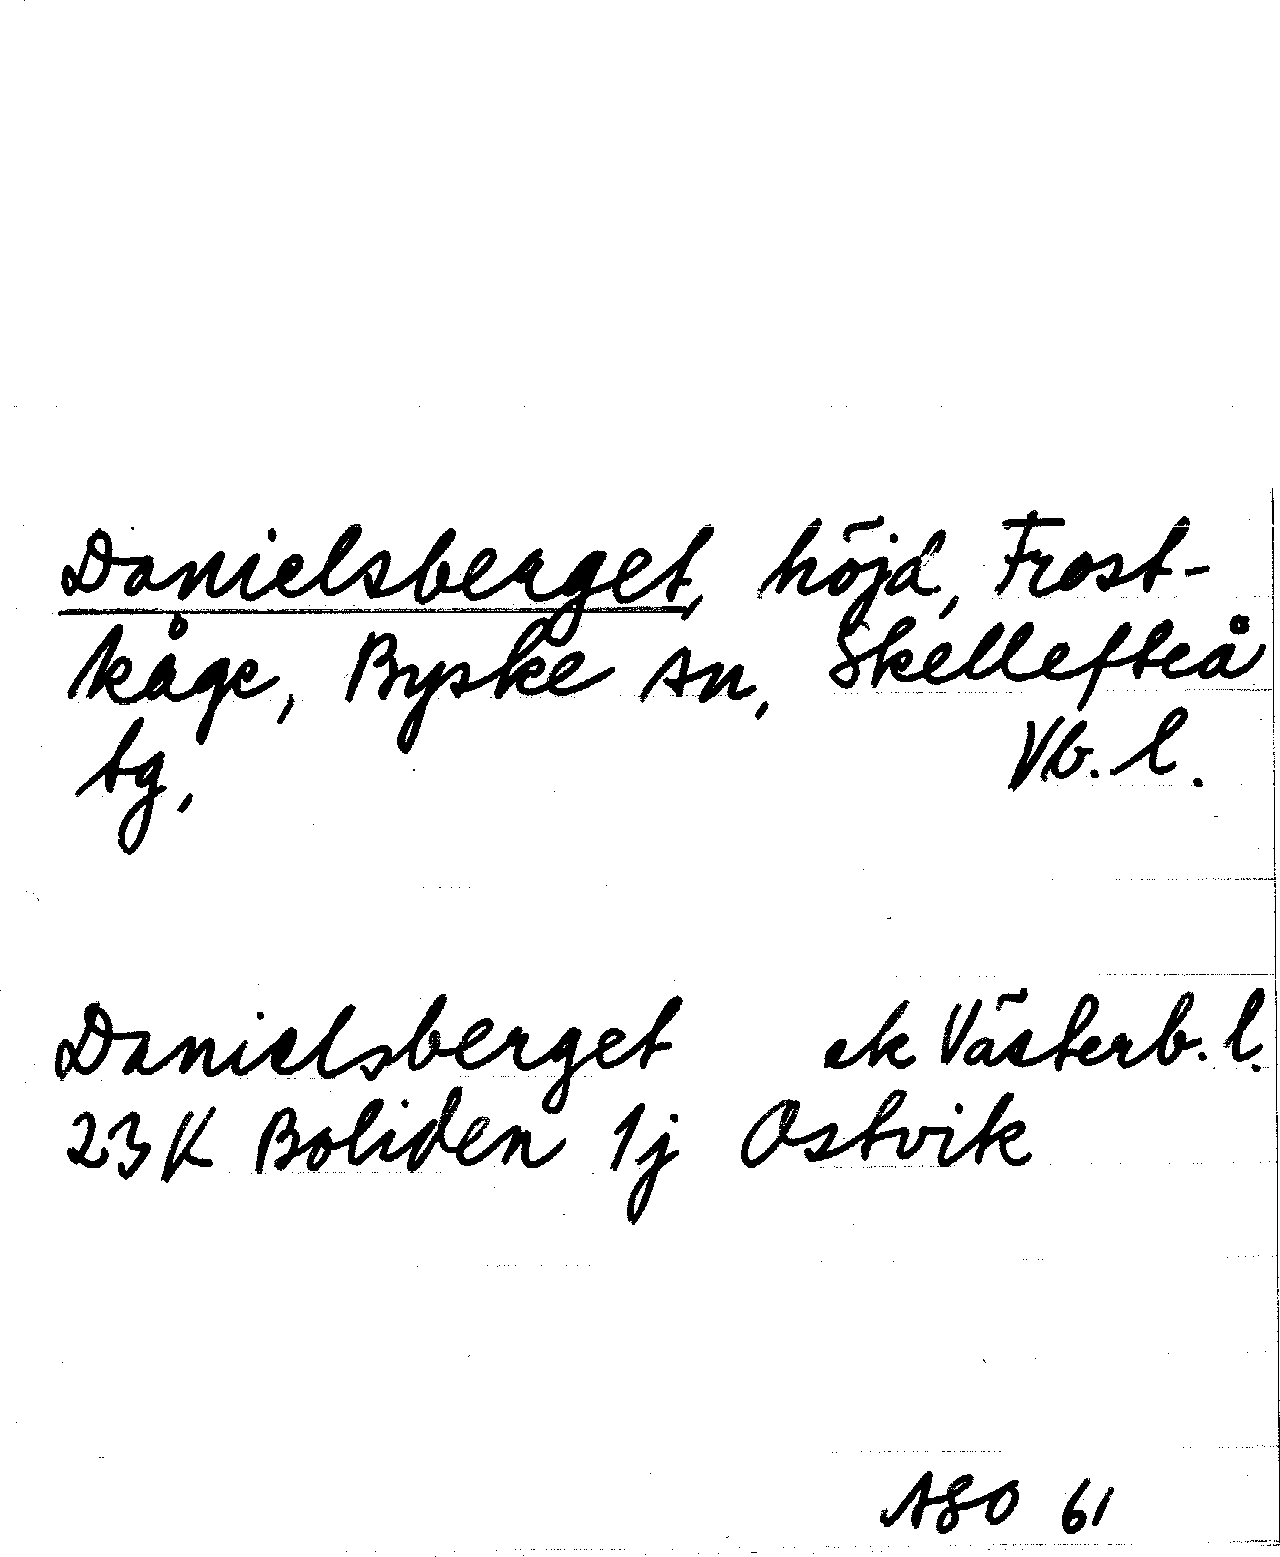 Danielsberget, höjd, Frost-
kåge, Byske sn, Skellefteå
tg, Vb. l.
Danielsberget ek Västerb. l.
23K Boliden 1j Ostvik
ASO 61